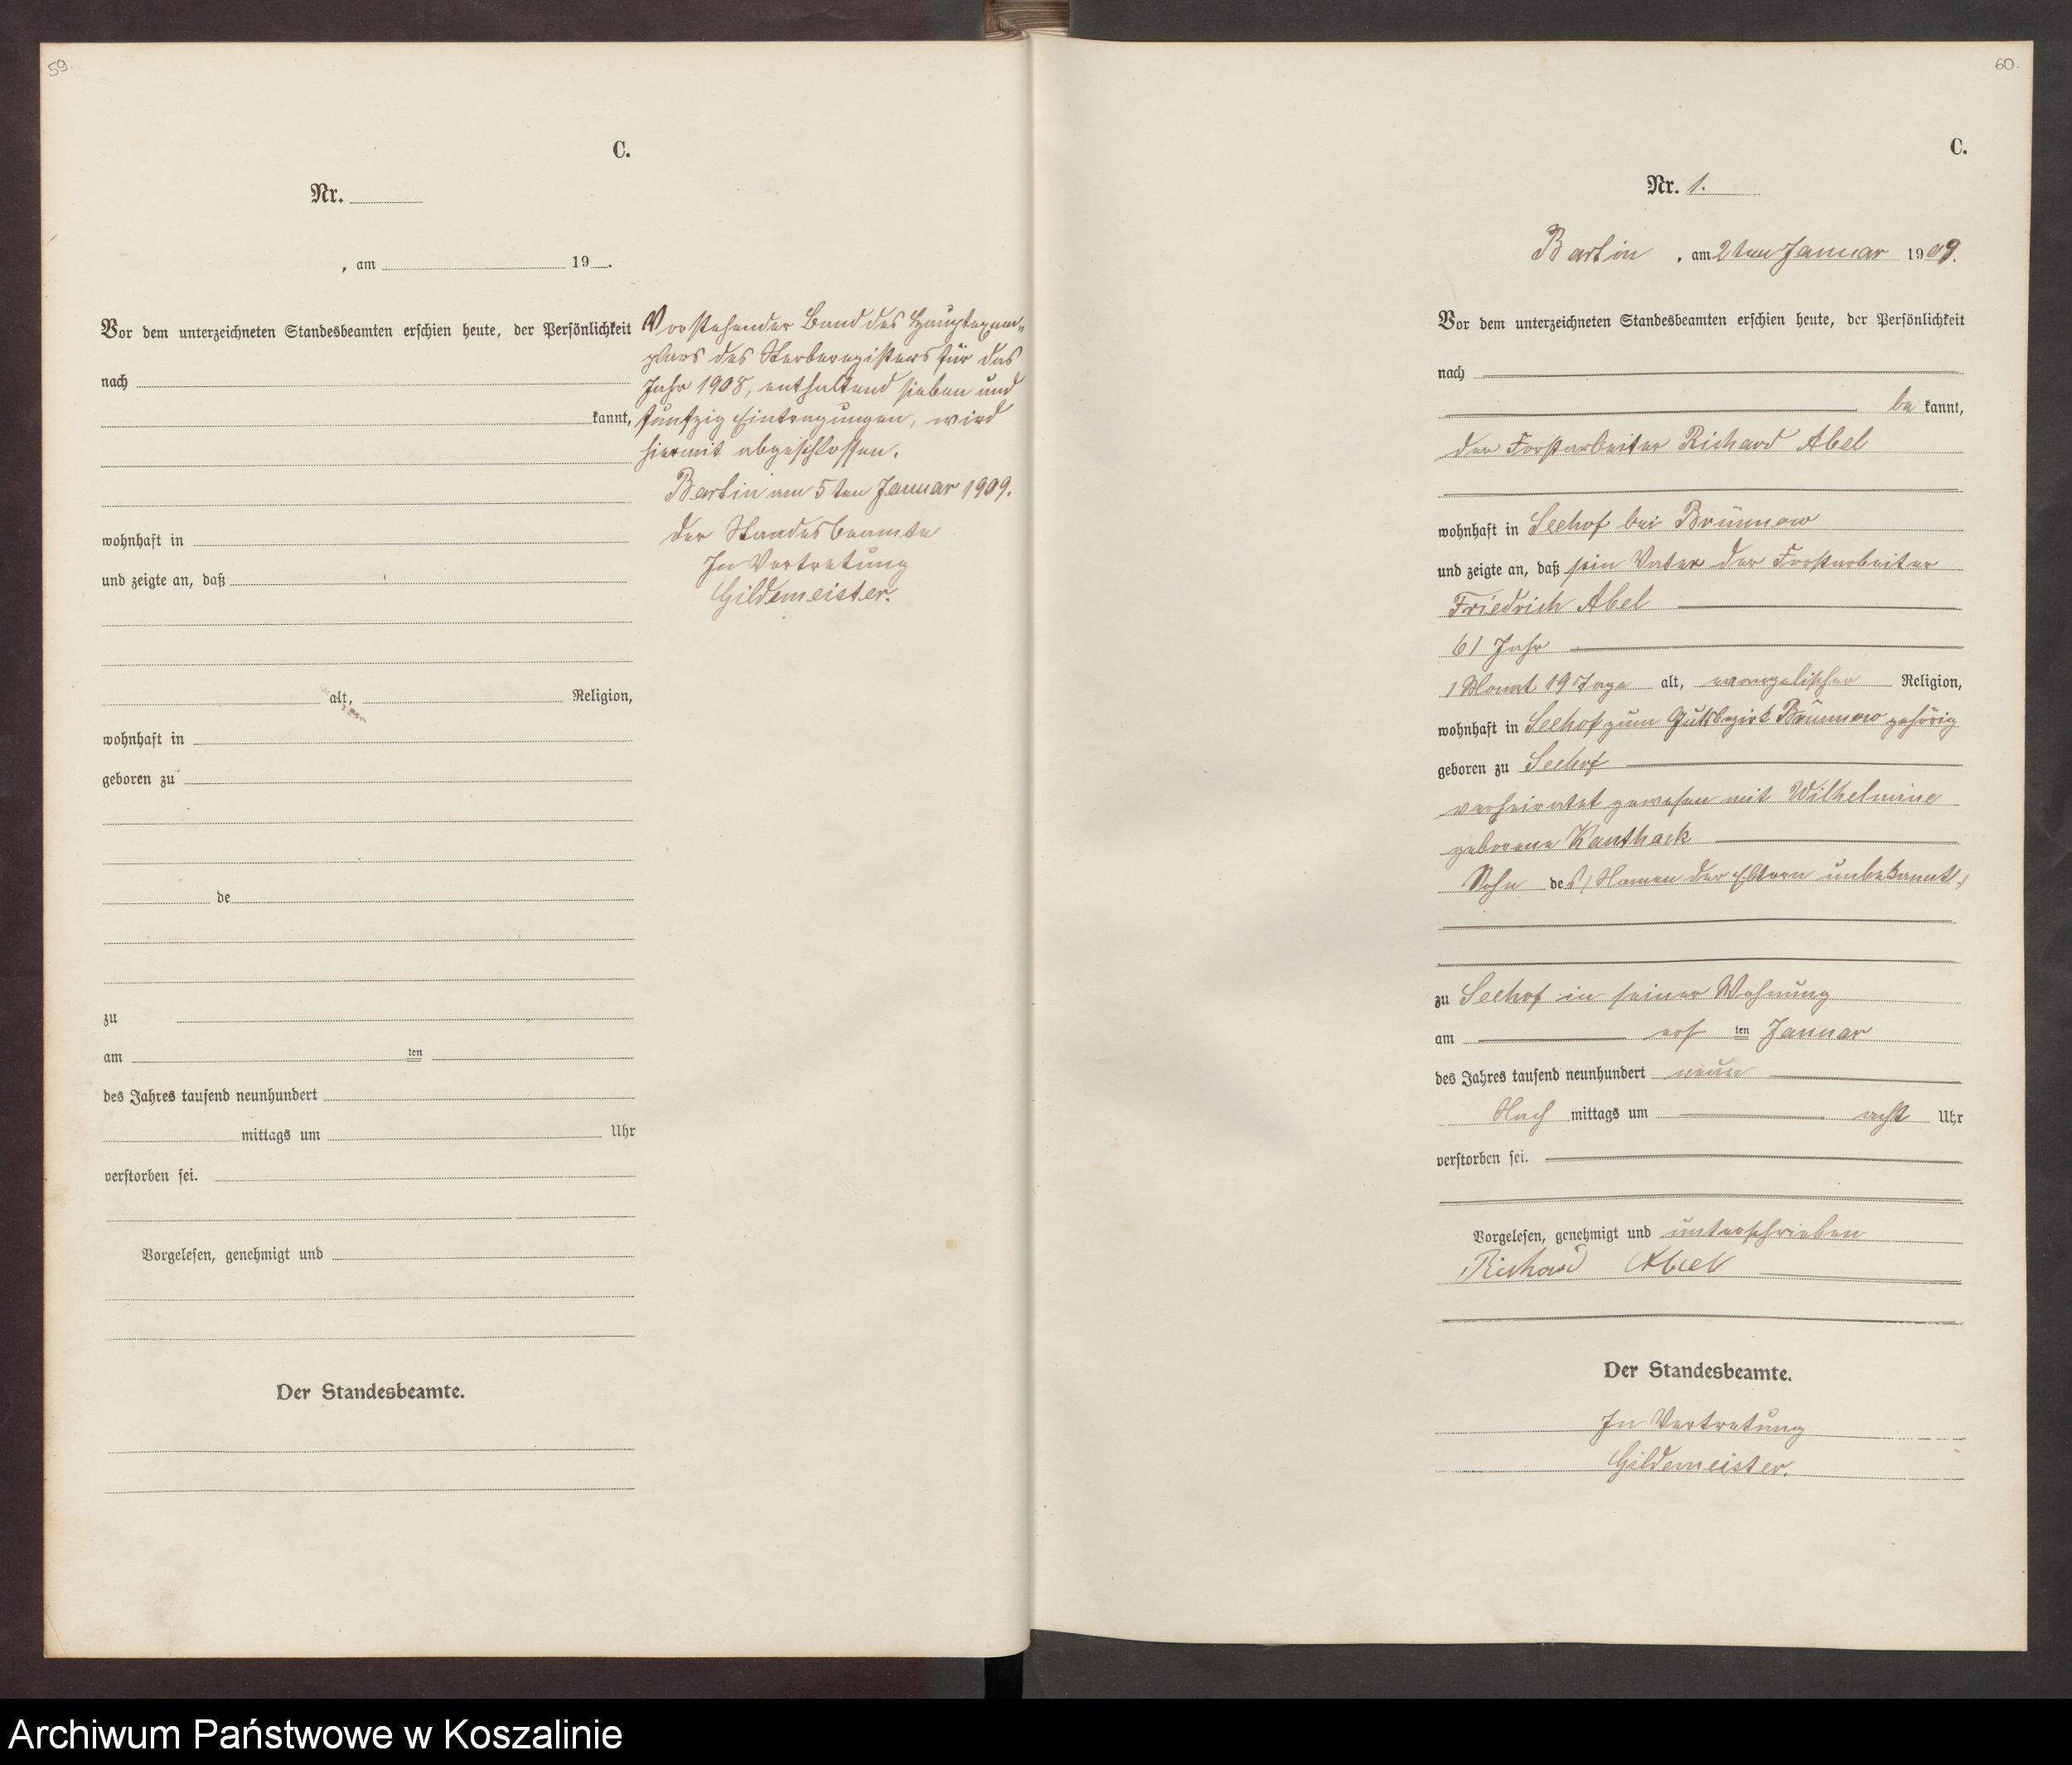 59.
C.
Nr.
, am 19 .
Vor dem unterzeichneten Standesbeamten erschien heute, der Persönlichkeit
nach
kannt,
wohnhaft in
und zeigte an, daß
alt, Religion,
wohnhaft in
geboren zu
de
zu
am ten
des Jahres tausend neunhundert
mittags um Uhr
verstorben sei.
Vorgelesen, genehmigt und
Der Standesbeamte.
Vorstehender Band des Hauptexem-
plars des Sterberegisters für das
Jahr 1908, enthaltend sieben und
fünfzig Eintragungen, wird
hiermit abgeschlossen.
Bartin am 5ten Januar 1909.
Der Standesbeamte
In Vertretung
Gildemeister.
60.
C.
Nr. 1.
Bartin , am 2ten Januar 1909.
Vor dem unterzeichneten Standesbeamten erschien heute, der Persönlichkeit
nach
be kannt,
der Forstarbeiter Richard Abel
wohnhaft in Seehof bei Brünnow
und zeigte an, daß sein Vater der Forstarbeiter
Friedrich Abel
61 Jahr
1 Monat 19 Tage alt, evangelischer Religion,
wohnhaft in Seehof zum Gutsbezirk Brünnow gehörig
geboren zu Seehof
verheiratet gewesen mit Wilhelmine
geborene Kanthack
Sohn des (Namen der Eltern unbekannt.)
zu Seehof in seiner Wohnung
am ers ten Januar
des Jahres tausend neunhundert neun
Nach mittags um acht Uhr
verstorben sei.
Vorgelesen, genehmigt und unterschrieben
Richard Abel
Der Standesbeamte.
In Vertretung
Gildemeister.
Archiwum Państwowe w Koszalinie